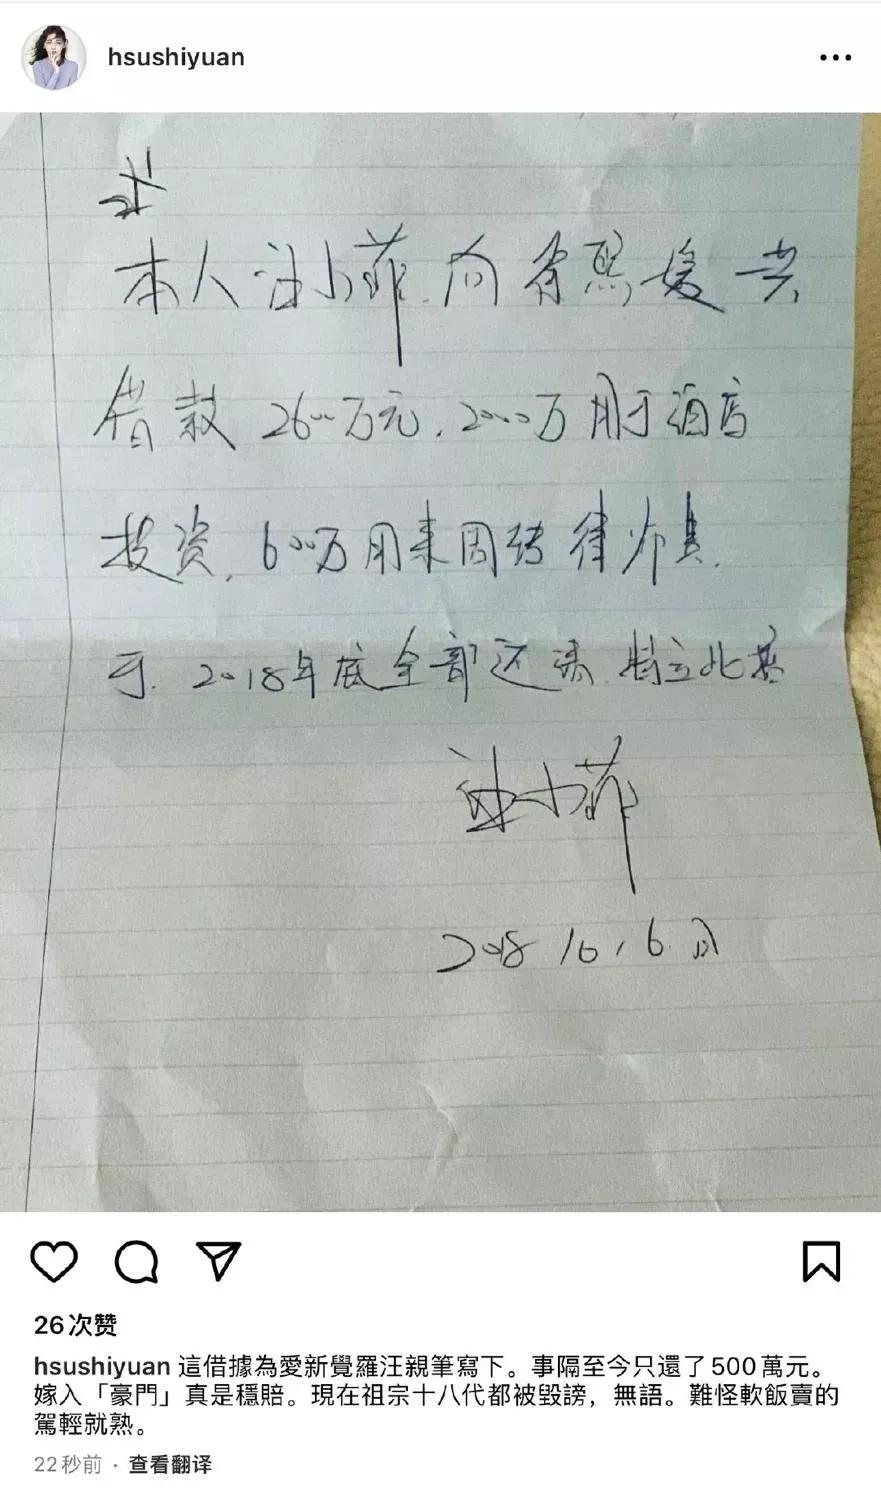 hsushiyuan
本人汪小菲.向徐熙媛共
借款 2600万元,2000万用于酒店
投资,600万用来周转律师费.
于.2018年底全部还清.特立此
汪小菲
2018 10,16.
26次赞
hsushiyuan 這借據為愛新覺羅汪親筆寫下。事隔至今只還了500萬元。
嫁入「豪門」真是穩賠。現在祖宗十八代都被毀謗，無語。難怪軟飯賣的
駕輕就熟。
22秒前 · 查看翻译